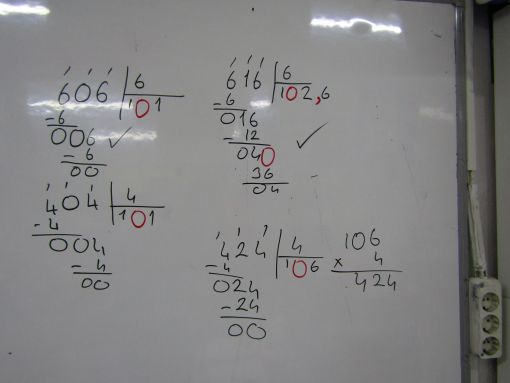 606 6
101
-6
006 ✓
-6
00
616 6
102,6
-6
016
-12 ✓
040
36
04
404 4
101
-4
004
-4
00
424 4
106
-4
024
-24
00
106
x 4
424